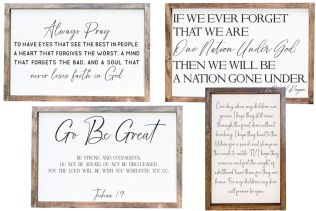 Always Pray
TO HAVE EYES THAT SEE THE BEST IN PEOPLE,
A HEART THAT FORGIVES THE WORST, A MIND
THAT FORGETS THE BAD, AND A SOUL THAT
never loses faith in God
IF WE EVER FORGET
THAT WE ARE
One Nation Under God,
THEN WE WILL BE
A NATION GONE UNDER.
Go Be Great
BE STRONG AND COURAGEOUS.
DO NOT BE AFRAID; DO NOT BE DISCOURAGED,
FOR THE LORD WILL BE WITH YOU WHEREVER YOU GO.
Joshua 1:9
One day, when my children are
grown, I hope they still come
through the front door without
knocking. I hope they head to the
kitchen for a snack and
I hope they
come in and feel the weight of
adulthood leave them for they are
home. For my children, my door
will forever be open.